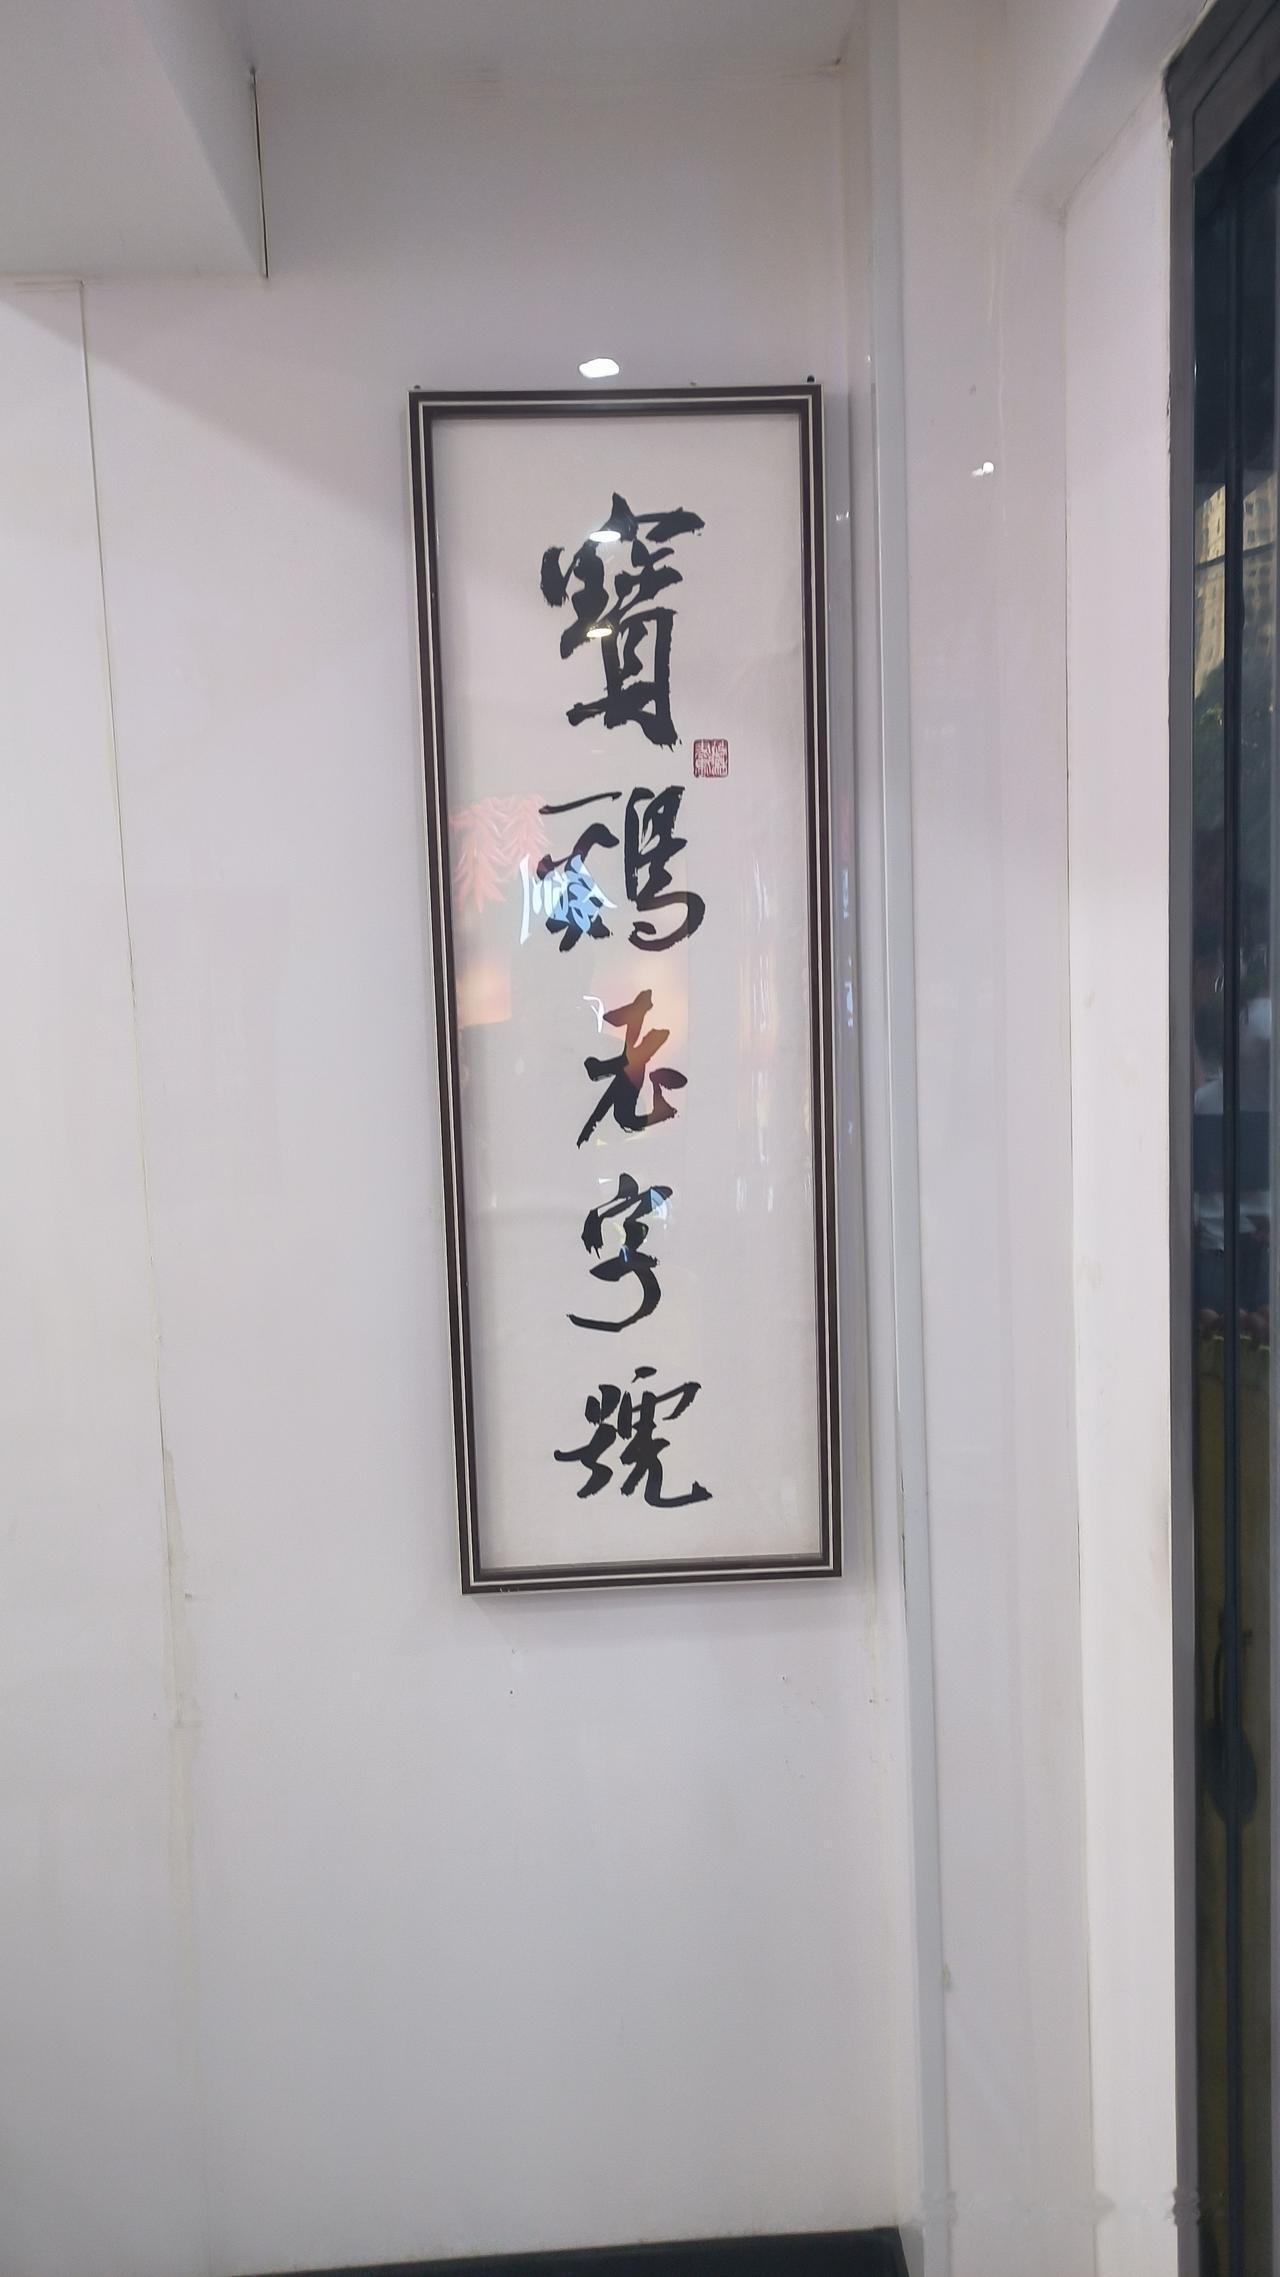 寶鷄老字號